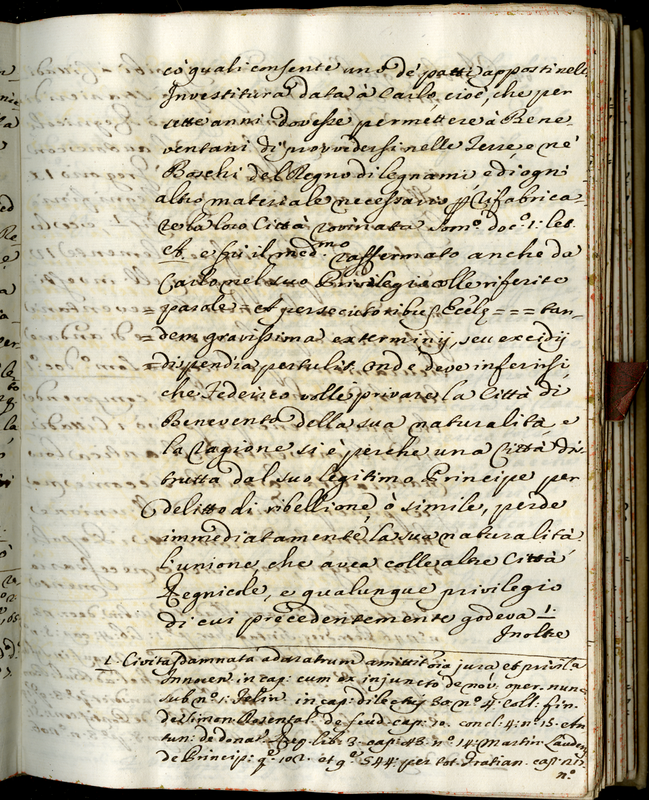 co' quali consente uno de' patti apposti nell'
Investitura data à Carlo, cioè, che per
sette anni dovesse permettere à Bene-
ventani di provvedersi nelle Terre, o ne'
Boschi del Regno di legnami e di ogni
altro materiale necessario per rifabrica-
re la loro Città rovinata Som.º doc.º 1: let.
A. e fù il med.mo raffermato anche da
Carlo nel suo Privilegio colle riferite
= parole = et persecutoribus Eccłę = = = tan-
= dem gravissima exterminij, seu excidij
= dispendia pertulit. Onde deve inferirsi
che Federico volle privare la Città di
Benevento della sua naturalità e
la ragione si è perche una Città dis-
trutta dal suo legitimo Principe per
delitto di ribellione, ò simile, perde
immediatamente la sua naturalità
l'unione che avea colle altre Città
Regnicole, e qualunque privilegio
di cui precedentemente godeva 1:
Inoltre
1. Civitas damnata ad aratrum amittit omnia jura et privil.a
Innocen in cap: cum ex injuncto de nov. oper. nunc.
sub n.º 1: Felin. in cap: dilectis 30 n.º 4: coll: fin.
de Simon: Rosental de feud. cap: 10. concl: 4: n.º 15.
tun: de donat. Reg. lib: 3. cap: 43. n.º 14: Martin Lauden
de Princip: q.º 102. et q.º 544: per tot.
n.º